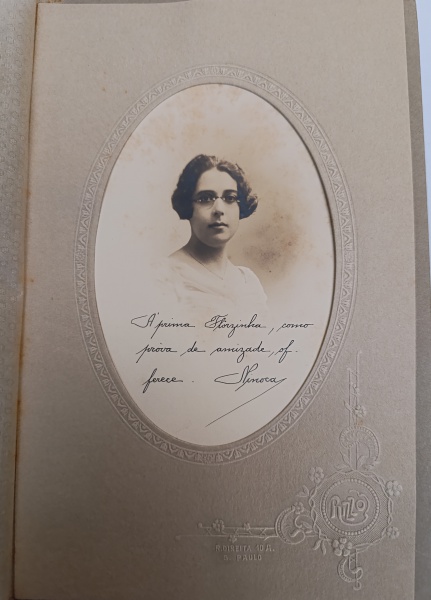 Á prima Florzinha, como
prova de amizade, of-
ferece. Ninoca
RIZZO
R. DIREITA 10 A.
S. PAULO